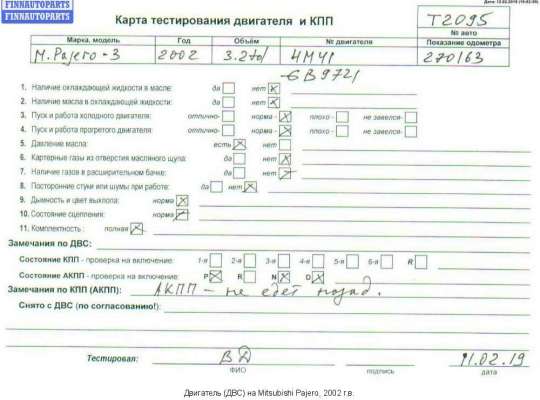 FINNAUTOPARTS
FINNAUTOPARTS
Карта тестирования двигателя и КПП
T2095
№ авто
Марка, модель Год Объём № двигателя Показание одометра
M. Pajero-3 2002 3.2tdi 4M41 270163
GB9721
1. Наличие охлаждающей жидкости в масле: да нет
2. Наличие масла в охлаждающей жидкости: да нет
3. Пуск и работа холодного двигателя: отлично- норма - плохо - не завелся-
4. Пуск и работа прогретого двигателя: отлично- норма - плохо - не завелся-
5. Давление масла: есть нет
6. Картерные газы из отверстия масляного щупа: да нет
7. Наличие газов в расширительном бачке: да нет
8. Посторонние стуки или шумы при работе: да нет
9. Дымность и цвет выхлопа: норма
10. Состояние сцепления: норма
11. Комплектность : полная
Замечания по ДВС:
Состояние КПП - проверка на включение: 1-я 2-я 3-я 4-я 5-я 6-я R
Состояние АКПП - проверка на включение: P R N D
Замечания по КПП (АКПП): АКПП - не едет назад.
Снято с ДВС (по согласованию!):
Тестировал: ВД 11.02.19
ФИО подпись дата
Двигатель (ДВС) на Mitsubishi Pajero, 2002 г.в.